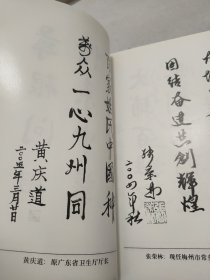 百家姓氏中国种
萬众一心九州同
黄庆道
二〇〇五年三月廿日
黄庆道:原广东省卫生厅厅长
团结奋进共创辉煌
二〇〇四年秋
张荣林:现任梅州市常